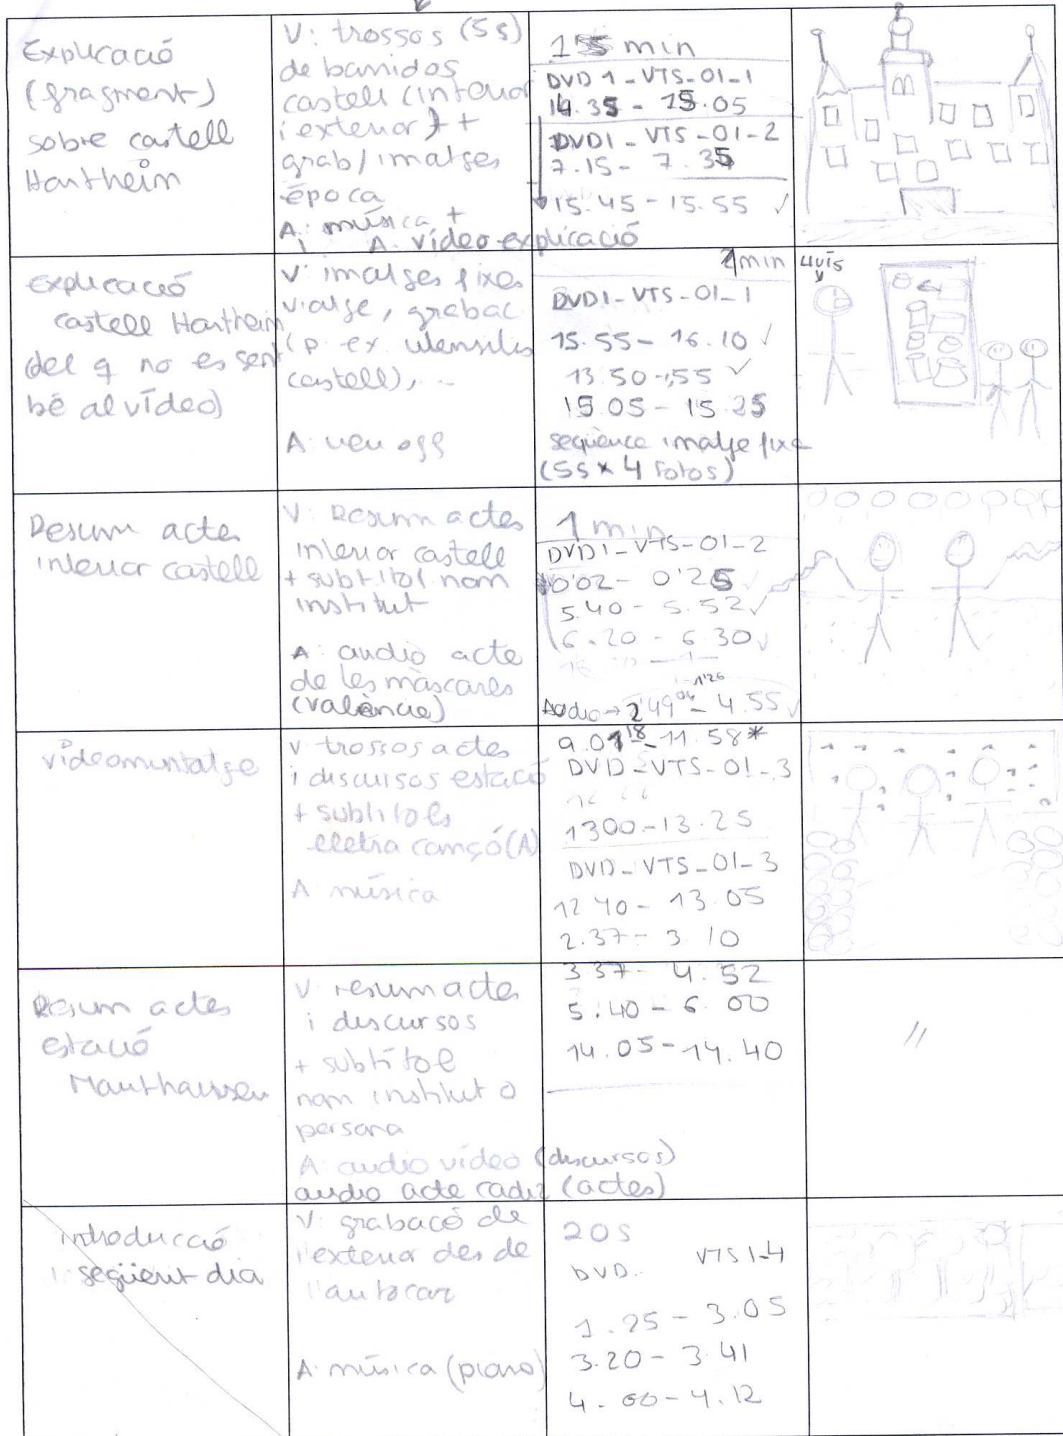 Explicació
(fragment)
sobre castell
Hartheim
V: trossos (5s)
de barridos
castell (interior
i exterior) +
grab/imatges
época
A: música +
A. vídeo explicació
min
DVD 1-VTS-01-1
14.35 - 15.05
DVD1-VTS-01-2
7.15- 7.35
15.45-15.55 ✓
Explicació
castell Hartheim
del q no es sent
bé al vídeo)
V: imatges fixes
viatge, grabac
(p. ex. utensilis
castell), ...
A: veu off
min
DVD1-VTS-01-1
15.55- 16.10 ✓
13.50-,55 ✓
15.05 - 15.25
seqüència imatge fixa
(5s x 4 fotos)
LLUÍS
Resum actes
interior castell
V: Resum actes
interior castell
+ subtítol nom
institut
A: audio acte
de les màscares
(València)
1 min
DVD1-VTS-01-2
0'02- 0'25 ✓
5.40 - 5.52 ✓
6.20 - 6.30 ✓
Audio → 2'49 - 4.55 ✓
videomuntatge
V: trossos actes
i discursos estació
+ subtítols
lletra cançó (A)
A música
11.58*
DVD-VTS-01-3
1300-13.25
DVD-VTS-01-3
12 40- 13.05
2.37- 3.10
Resum actes
estació
Mauthausen
V: resum actes
i discursos
+ subtítol
nom institut o
persona
A: audio vídeo (discursos)
audio acte cadiz (actes)
3 37- 4.52
5.40 - 6.00
14.05-14.40
//
introducció
següent dia
V: grabació de
l'exterior des de
l'autocar
A: música (piano)
20s
DVD. VTS 1-4
1.25 - 3.05
3.20 - 3.41
4.00-4.12